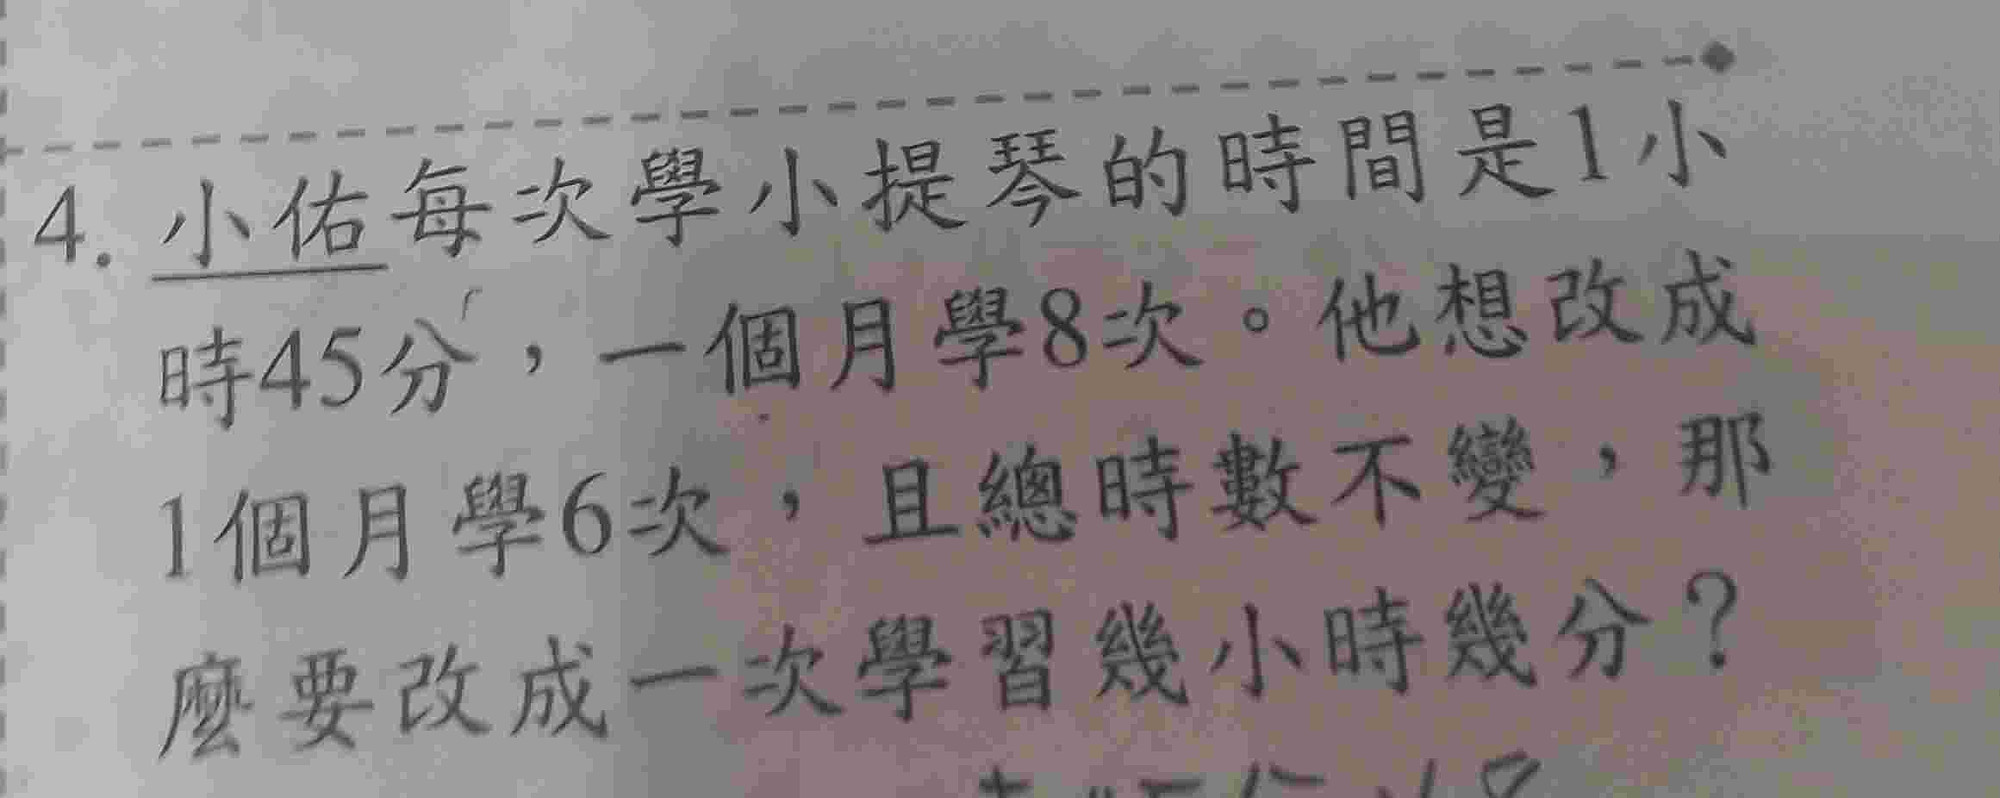 4. 小佑每次學小提琴的時間是1小
時45分，一個月學8次。他想改成
1個月學6次，且總時數不變，那
麼要改成一次學習幾小時幾分？